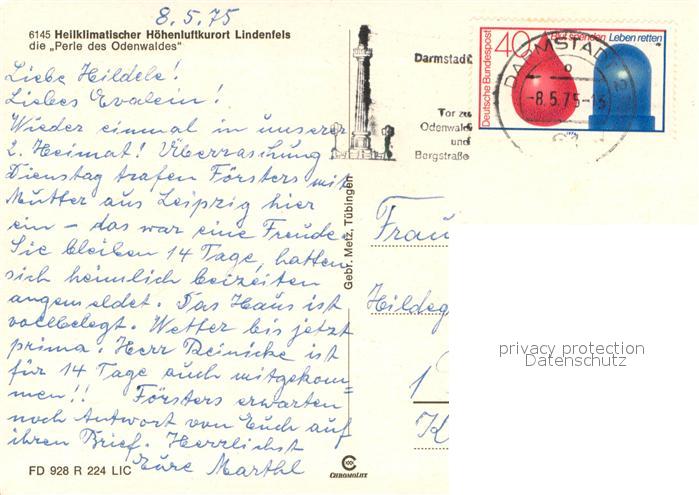 8.5.75
6145 Heilklimatischer Höhenluftkurort Lindenfels
die „Perle des Odenwaldes“
Liebe Hildele!
Liebes Evalein!
Wieder einmal in unserer
2. Heimat! Überraschung
Dienstag trafen Försters mit
Mutter aus Leipzig hier
ein – das war eine Freude.
Sie bleiben 14 Tage, hatten
sich heimlich beizeiten
angemeldet. Das Haus ist
vollbelegt. Wetter bis jetzt
prima. Herr Reinicke ist
für 14 Tage auch mitgekom=
men!! Försters erwarten
noch Antwort von Euch auf
ihren Brief. Herzlichst
Eure Marthl
FD 928 R 224 LIC
CHROMOLUX
Gebr. Metz, Tübingen
Darmstadt
Tor zu
Odenwald
und
Bergstraße
DARMSTADT
-8.5.75-13
Deutsche Bundespost
40
Blut spenden Leben retten
Frau
Hildeg
1
K
privacy protection
Datenschutz